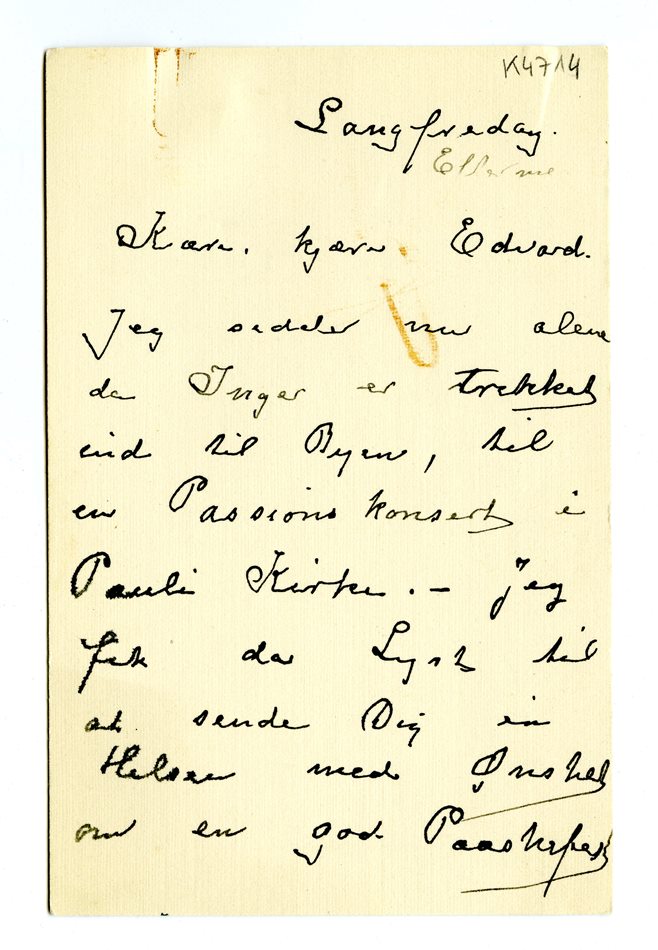 K4714
Langfredag.
Kære. kjære. Edvard.
Jeg sidder nu alene
da Inger er trukket
ind til Byen, til
en Passionskonsert i
Pauli Kirke. – Jeg
fik da Lyst til
at sende Dig en
Hilsen med Ønsket
om en god Paaskefest